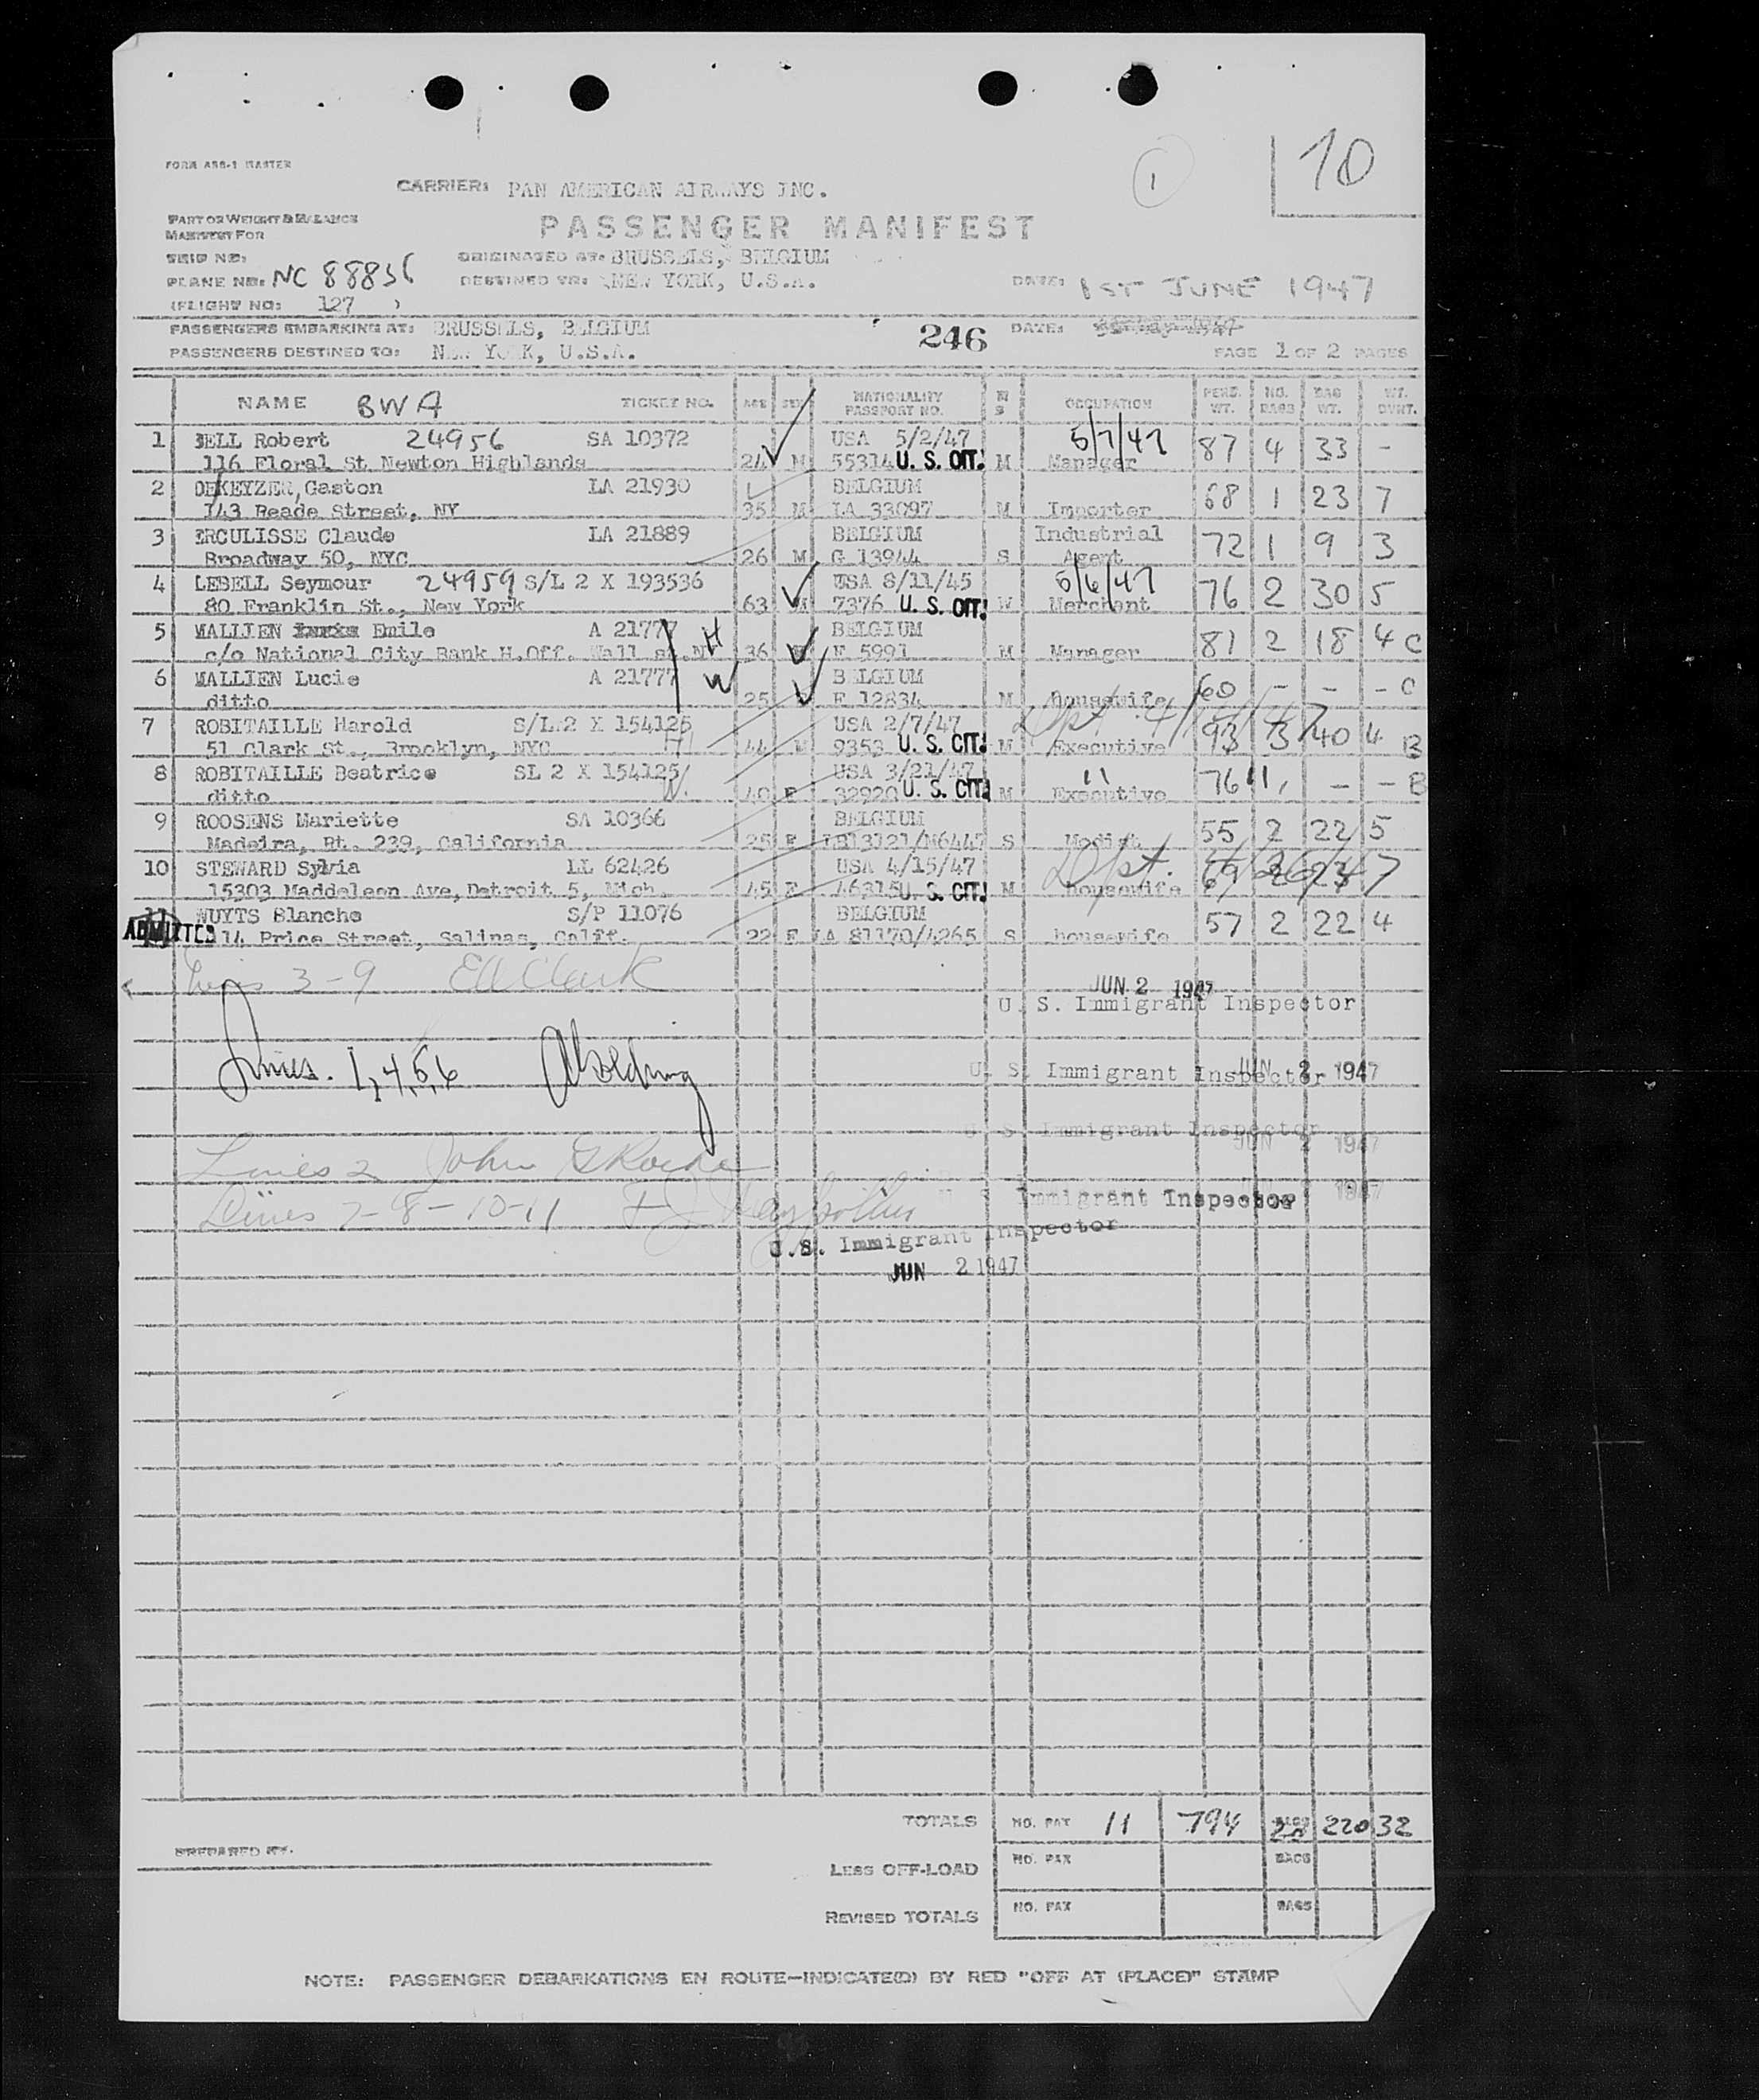 FORM ASB-1 MASTER
1
10
CARRIER: PAN AMERICAN AIRWAYS INC.
PART OR WEIGHT & BALANCE
MANIFEST FOR
PASSENGER MANIFEST
TRIP NO:
ORIGINATED AT: BRUSSELS, BELGIUM
PLANE NO: NC 88836
DESTINED TO: NEW YORK, U.S.A.
DATE: 1ST JUNE 1947
(FLIGHT NO: 127 )
PASSENGERS EMBARKING AT: BRUSSELS, BELGIUM
246
DATE:
PASSENGERS DESTINED TO: NEW YORK, U.S.A.
PAGE 1 OF 2 PAGES
NAME BWA TICKET NO. AGE SEX NATIONALITY PASSPORT NO. M S OCCUPATION PERS. WT. NO. BAGS BAG WT. WT. OVHT.
1 BELL Robert 24956 SA 10372 USA 5/2/47 5/7/47 87 4 33 -
116 Floral St Newton Highlands 24 M 55314 U. S. CIT. M Manager
2 DEKEYZER, Gaston LA 21930 BELGIUM 68 1 23 7
143 Reade Street, NY 35 M LA 33097 M Importer
3 ERCULISSE Claude LA 21889 BELGIUM Industrial 72 1 9 3
Broadway 50, NYC 26 M G 13944 S Agent
4 LEBELL Seymour 24959 S/L 2 X 193536 USA 8/11/45 5/6/47 76 2 30 5
80 Franklin St., New York 63 M 7376 U. S. CIT. W Merchant
5 MALLIEN Emile A 21777 H BELGIUM 81 2 18 4 C
c/o National City Bank H.Off. Wall st.NY 36 E 5991 M Manager
6 MALLIEN Lucie A 21777 W BELGIUM 60 - - - C
ditto 25 E 12834 M housewife
7 ROBITAILLE Harold S/L.2 X 154125 H USA 2/7/47 Dpt. 93 3 40 4 B
51 Clark St., Brooklyn, NYC 44 M 9353 U. S. CIT. M Executive
8 ROBITAILLE Beatrice SL 2 X 154125 W. USA 3/21/47 " 76 - - B
ditto 40 F 32920 U. S. CIT. M Executive
9 ROOSENS Mariette SA 10366 BELGIUM 55 2 22 5
Madeira, Rt. 239, California 25 F S Modist
10 STEWARD Sylvia LL 62426 USA 4/15/47 Dpt.
15303 Maddeleen Ave, Detroit 5, Mich. 45 F 46315 U. S. CIT. M housewife
11 NUYTS Blanche S/P 11076 BELGIUM 57 2 22 4
ADMITTED 14 Price Street, Salinas, Calif. 22 F A 81170/4265 S housewife
Lines 3-9 E W Clark
JUN 2 1947
U. S. Immigrant Inspector
Lines. 1,4,5,6
U. S. Immigrant Inspector JUN 2 1947
U S Immigrant Inspector
JUN 2 1947
Lines 2 John G Roche
Lines 7-8-10-11
U S Immigrant Inspector 1947
U.S. Immigrant Inspector
JUN 2 1947
TOTALS NO. PAX 11 794 BAGS 220 32
PREPARED BY.
LESS OFF-LOAD NO. PAX BAGS
REVISED TOTALS NO. PAX BAGS
NOTE: PASSENGER DEBARKATIONS EN ROUTE—INDICATE(D) BY RED "OFF AT (PLACE)" STAMP